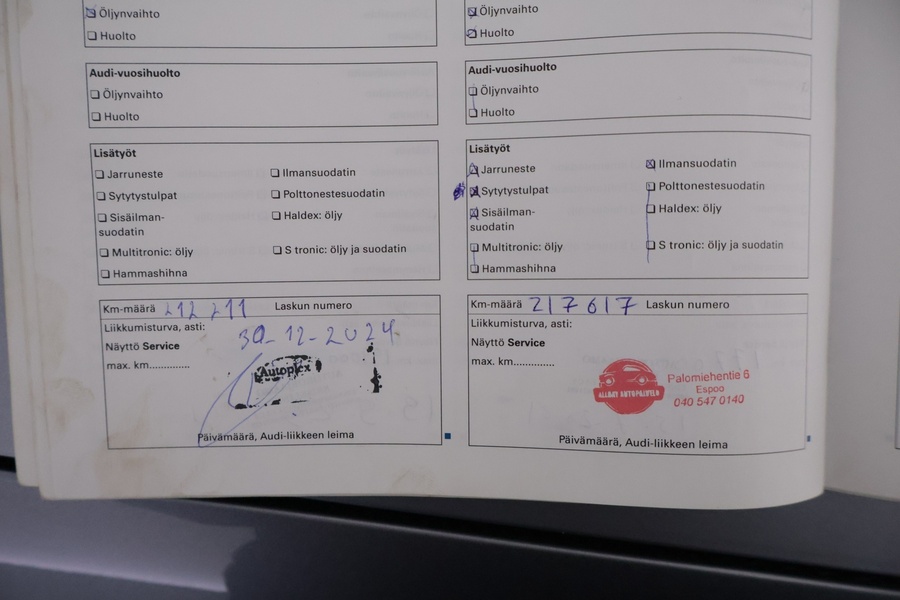 Öljynvaihto
Huolto
Audi-vuosihuolto
Öljynvaihto
Huolto
Lisätyöt
Jarruneste
Ilmansuodatin
Sytytystulpat
Polttonestesuodatin
Sisäilman-
suodatin
Haldex: öljy
Multitronic: öljy
S tronic: öljy ja suodatin
Hammashihna
Km-määrä 212 211 Laskun numero
Liikkumisturva, asti:
30-12-2024
Näyttö Service
max. km..............
Autoplex
Päivämäärä, Audi-liikkeen leima
Öljynvaihto
Huolto
Audi-vuosihuolto
Öljynvaihto
Huolto
Lisätyöt
Jarruneste
Ilmansuodatin
Sytytystulpat
Polttonestesuodatin
Sisäilman-
suodatin
Haldex: öljy
Multitronic: öljy
S tronic: öljy ja suodatin
Hammashihna
Km-määrä 217617 Laskun numero
Liikkumisturva, asti:
Näyttö Service
max. km..............
Palomiehentie 6
Espoo
040 547 0140
Päivämäärä, Audi-liikkeen leima